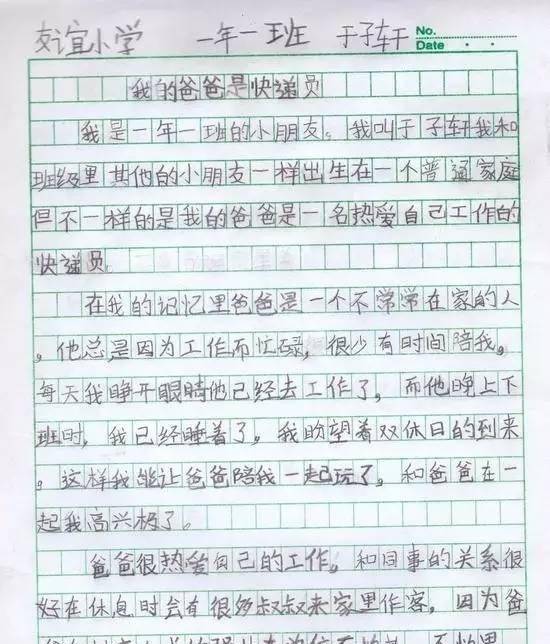 友谊小学 一年一班 于子轩 No.
Date
我的爸爸是快递员
我是一年一班的小朋友。我叫于子轩我和
班级里其他的小朋友一样出生在一个普通家庭
但不一样的是我的爸爸是一名热爱自己工作的
快递员
在我的记忆里爸爸是一个不常常在家的人
。他总是因为工作而忙碌，很少有时间陪我。
每天我睁开眼睛他已经去工作了，而他晚上下
班时，我已经睡着了。我盼望着双休日的到来
。这样我能让爸爸陪我一起玩了。和爸爸在一
起我高兴极了。
爸爸很热爱自己的工作。和同事的关系很
好在休息时会有很多叔叔来家里作客，因为爸